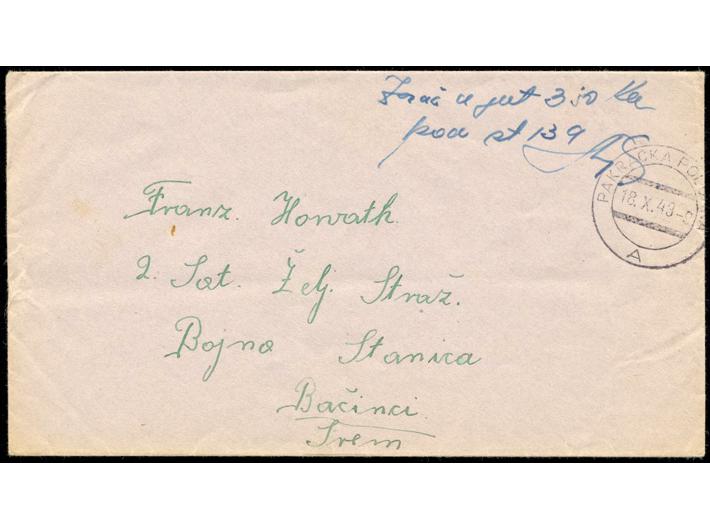 Zorač u gut 350 Ku
pod st 139
PAKRAČKA POLJANA
18. X. 43-9
A
Franz. Horvath.
2. Sat. Želj. Straž.
Bojna Stanica
Bačinci.
Srem